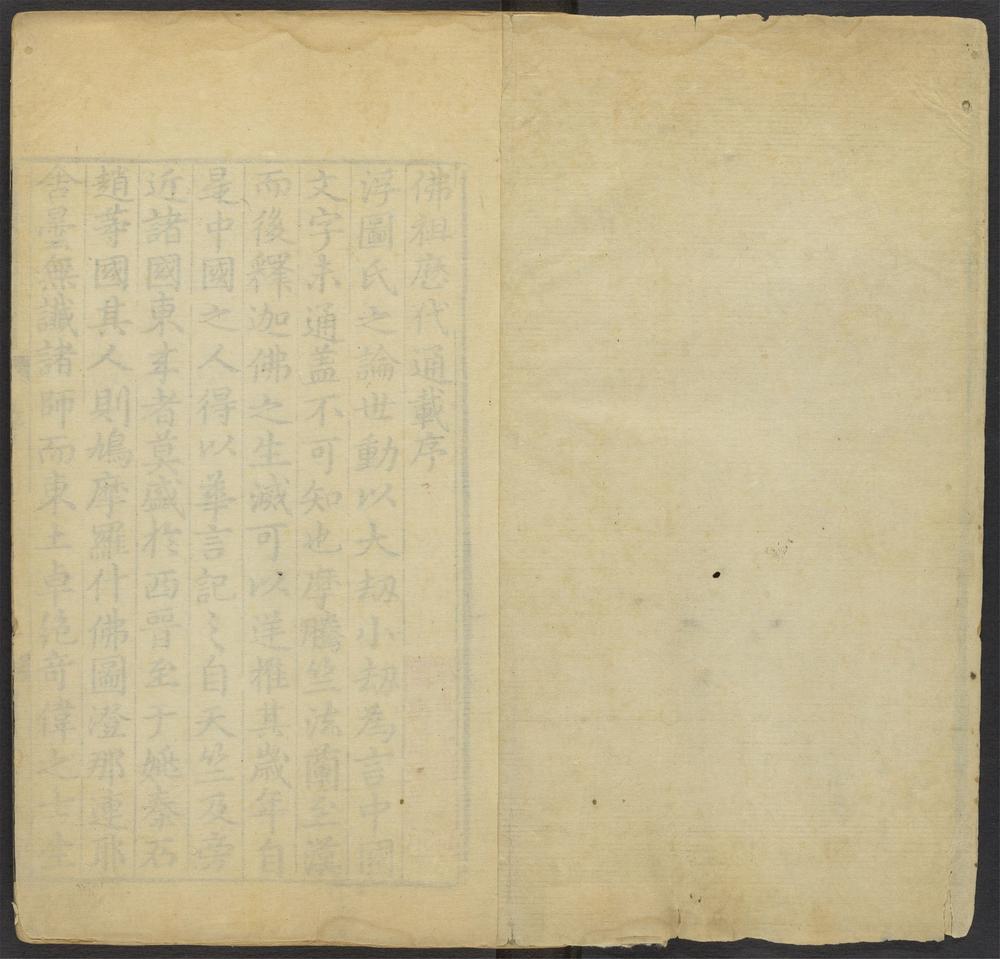 佛祖歷代通載序
浮圖氏之論世動以大劫小劫為言中國
文字未通蓋不可知也摩騰竺法蘭至漢
而後釋迦佛之生滅可以逆推其歲年自
是中國之人得以華言記之自天竺及旁
近諸國東来者莫盛於西晉至于姚秦石
趙等國其人則鳩摩羅什佛圖澄那連耶
舍曇無讖諸師而東土卓絶奇偉之士生